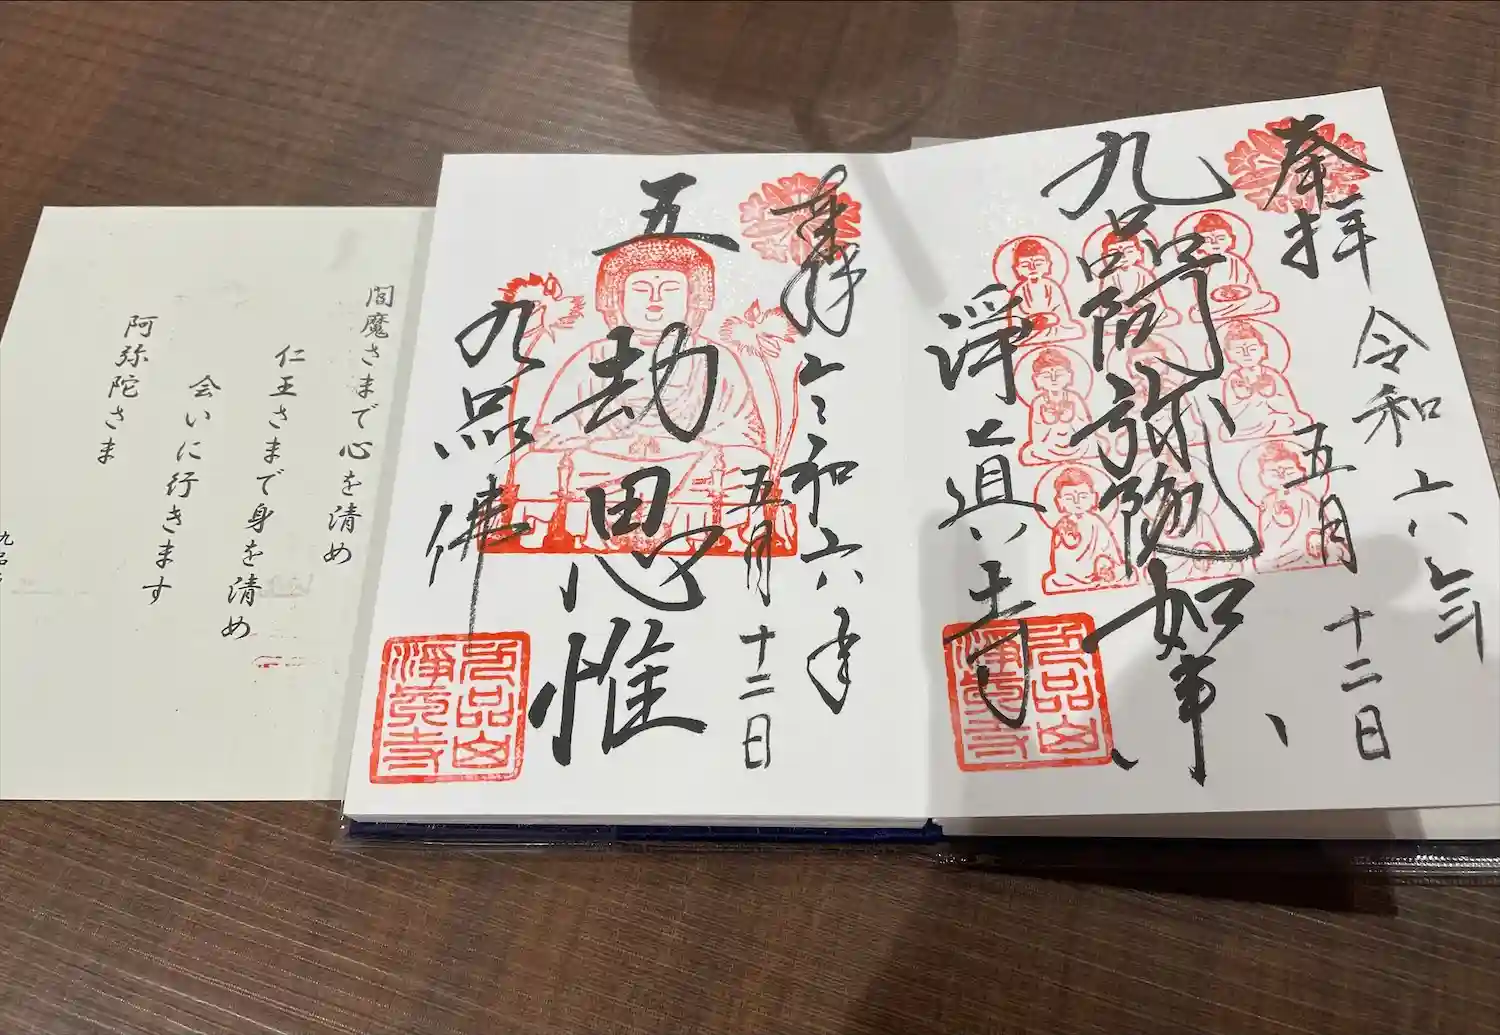 奉拝
令和六年
五月
十二日
九品
弥陀如来
淨真寺
九品山
淨真寺
奉拝
令和六年
五月
十二日
五劫思惟
九品佛
九品山
淨真寺
閻魔さまで心を清め
仁王さまで身を清め
会いに行きます
阿弥陀さま